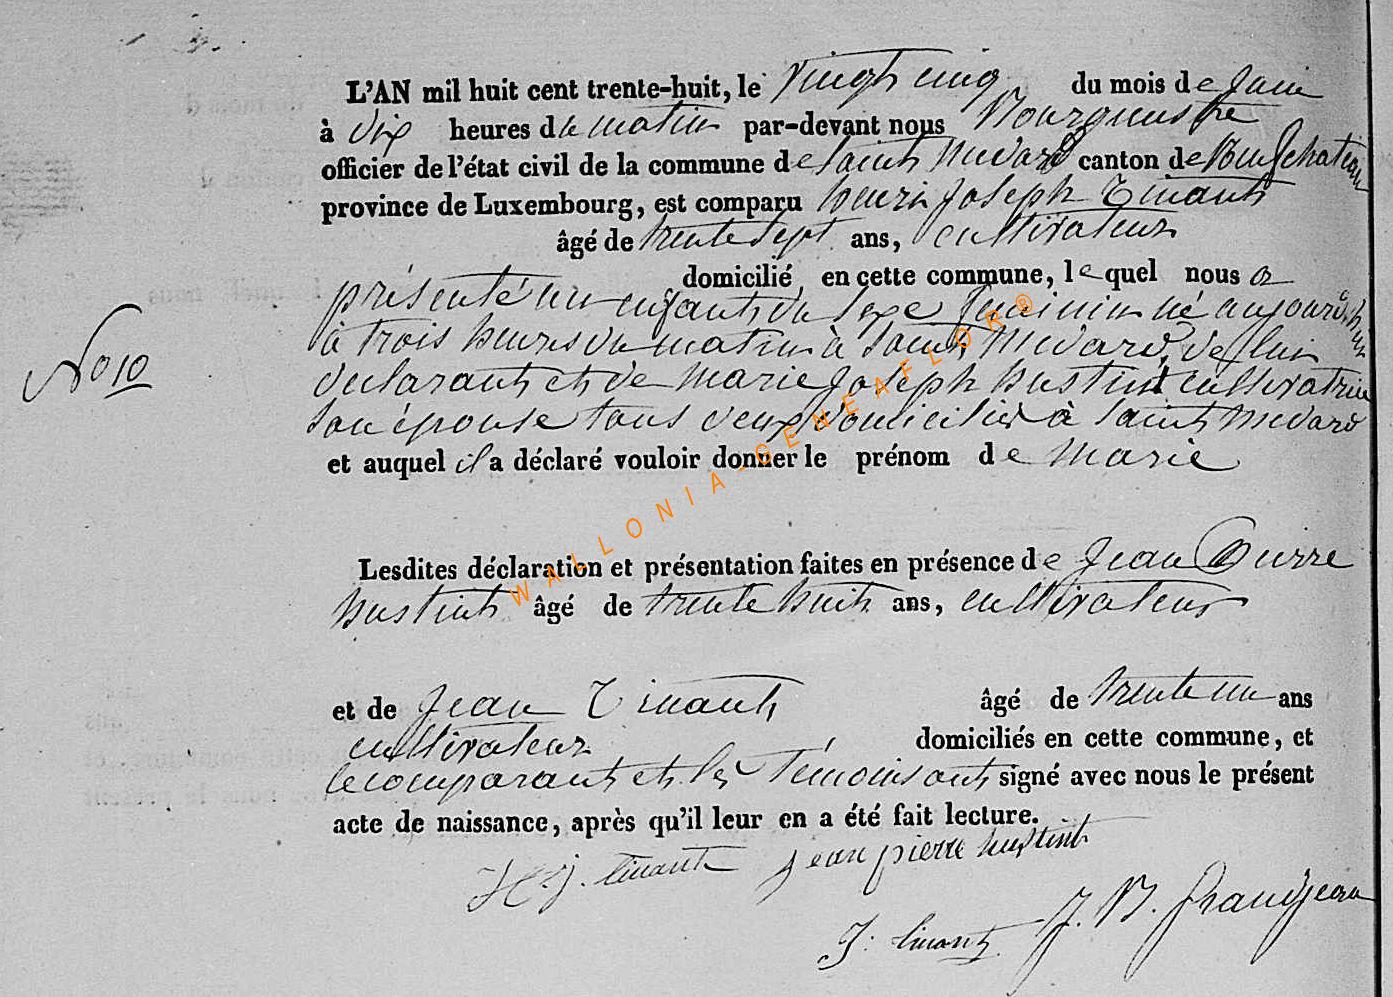 L'AN mil huit cent trente-huit, le vingt cinq du mois de Juin
à dix heures du matin par-devant nous Bourguestre
officier de l'état civil de la commune de Saint Médard canton de Neufchateau
province de Luxembourg, est comparu henri joseph Tinant
âgé de trente sept ans, cultivateur
domicilié en cette commune, le quel nous a
présenté un enfant du sexe féminin né aujourd'hui
à trois heures du matin à Saint Médard, de lui
déclarant et de marie joseph hustin cultivatrice
son épouse tous deux domiciliés à Saint médard
N° 10
et auquel il a déclaré vouloir donner le prénom de marie
Lesdites déclaration et présentation faites en présence de Jean Pierre
hustint âgé de trente huit ans, cultivateur
et de Jean Tinant âgé de trente un ans
cultivateur domiciliés en cette commune, et
le comparant et les Témoins ont signé avec nous le présent
acte de naissance, après qu'il leur en a été fait lecture.
H. j. tinant jean pierre hustint
J. tinant J. B. Grandjean
WALLONIA-GENEAFLOR®